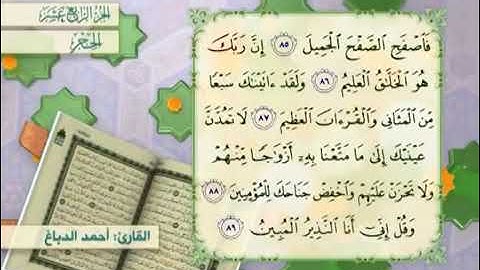 الجزء الرابع عشر
الحجر
فَٱصْفَحِ ٱلصَّفْحَ ٱلْجَمِيلَ ٨٥ إِنَّ رَبَّكَ
هُوَ ٱلْخَلَّٰقُ ٱلْعَلِيمُ ٨٦ وَلَقَدْ ءَاتَيْنَٰكَ سَبْعًا
مِّنَ ٱلْمَثَانِى وَٱلْقُرْءَانَ ٱلْعَظِيمَ ٨٧ لَا تَمُدَّنَّ
عَيْنَيْكَ إِلَىٰ مَا مَتَّعْنَا بِهِۦٓ أَزْوَٰجًا مِّنْهُمْ
وَلَا تَحْزَنْ عَلَيْهِمْ وَٱخْفِضْ جَنَاحَكَ لِلْمُؤْمِنِينَ ٨٨
وَقُلْ إِنِّىٓ أَنَا ٱلنَّذِيرُ ٱلْمُبِينُ ٨٩
القارئ: أحمد الدباغ